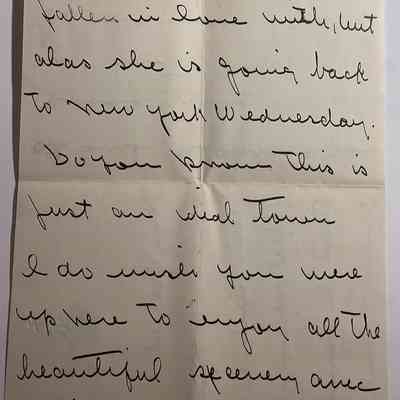 fallen in love with, but
alas she is going back
to New York Wednesday.
Do you know this is
just an ideal town
I do wish you were
up here to enjoy all the
beautiful scenery and